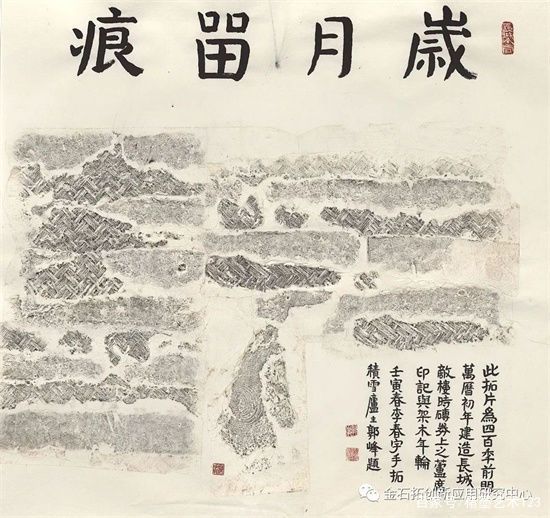 歲月留痕
此拓片為四百秊前明
萬曆初年建造長城
敵樓時磚券上之蘆席
印記與架木年輪
壬寅春李春宇手拓
積雪廬主郭峰題
金石拓创新应用研究中心